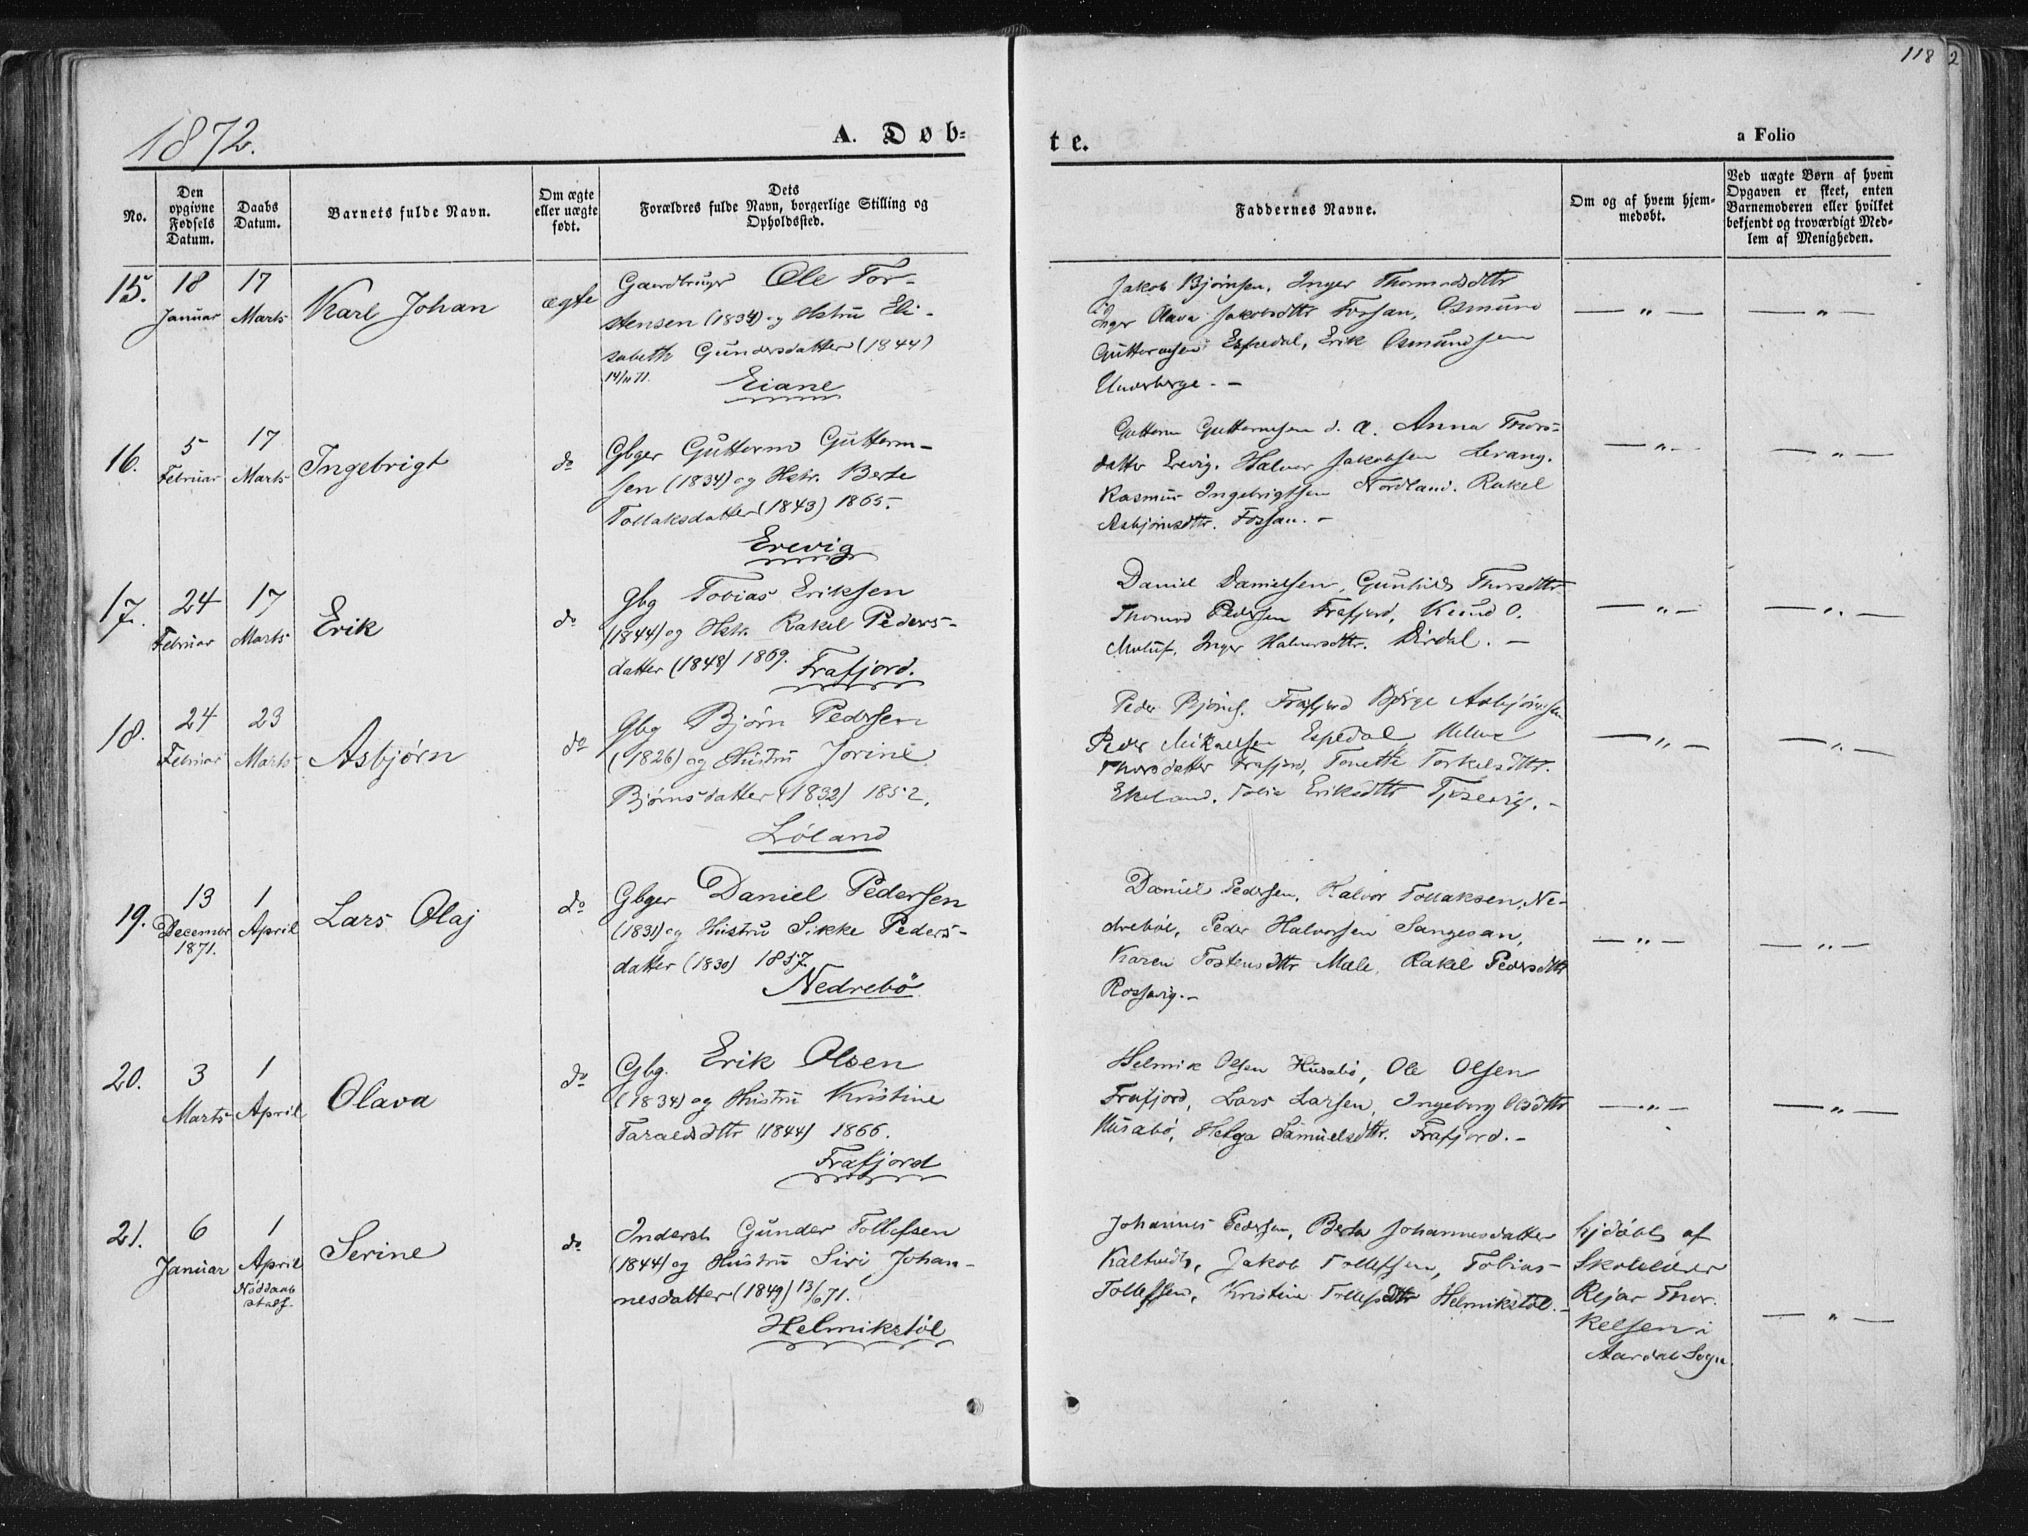 118
2
1872.
A. Døb-
te.
a Folio
No.
Den opgivne Fødsels Datum.
Daabs Datum.
Barnets fulde Navn.
Om ægte eller uægte født.
Dets Forældres fulde Navn, borgerlige Stilling og Opholdssted.
Faddernes Navne.
Om og af hvem hjemmedøbt.
Ved uægte Børn af hvem Opgaven er skeet, enten Barnemoderen eller hvilket bekjendt og troværdigt Medlem af Menigheden.
15.
18 Januar
17 Marts
Karl Johan
ægte
Gaardbruger Ole Tor-
stensen (1834) og Hstru Eli-
sabeth Gundersdatter (1844)
14/11 71.
Eiane
Jakob Bjørnsen, Inger Thormodsdttr
Inger Olava Jakobsdttr Fossan, Osmund
Guttormsen Espedal, Erik Osmundsen
Underberge. -
— " —
— " —
16.
5 Februar
17 Marts
Ingebrigt
do
Gbger Guttorm Guttorm-
sen (1834) og Hstr. Berte
Tollaksdatter (1843) 1865.
Erevig
Guttorm Guttormsen d. a. Anna Thors-
datter Erevig. Halvor Jakobsen Lerang.
Rasmus Ingebrigtsen Nordland. Rakel
Asbjørnsdttr. Fossan. -
— " —
— " —
17.
24 Februar
17 Marts
Erik
do
Gbg Tobias Eriksen
(1844) og Hstr. Rakel Peders-
datter (1848) 1869.
Frafjord.
Daniel Danielsen, Gunhild Thorsdttr
Thormod Pedersen Frafjord, Knud O.
Moluf, Inger Halvorsdttr. Dirdal. -
— " —
— " —
18.
24 Februar
23 Marts
Asbjørn
do
Gbg Bjørn Pedersen
(1826) og Hustru Jorine
Bjørnsdatter (1832) 1852.
Løland
Peder Bjørns. Frafjord Børge Asbjørnsen
Peder Mikaelsen Espedal Helene
Thorsdatter Frafjord, Tonette Torkelsdttr.
Ekeland. Eriksdttr
— " —
— " —
19.
13 December 1871.
1 April
Lars Olaj
do
Gbger Daniel Pedersen
(1831) og Hustru Sikke Peders-
datter (1830) 1857.
Nedrebö
Daniel Pedersen, Halvor Tollaksen, Ne-
drebøe, Peder Halvorsen Sangesan,
Karen Tostensdttr Mæle, Rakel Pedersdttr
Rossavig. -
— " —
— " —
20.
3 Marts
1 April
Olava
do
Gbg. Erik Olsen
(1834) og Hustru Kristine
Taraldsdttr (1844) 1866.
Frafjord
Helmik Olsen Husabø, Ole Olsen
Frafjord, Lars Larsen, Ingeborg Olsdttr
Husabø, Helga Samuelsdttr. Frafjord. -
— " —
— " —
21.
6 Januar
1 April
Nöddaab
stadf.
Serine
do
Inderst Gunder Tollefsen
(1844) og Hustru Siri Johan-
nesdatter (1849) 13/6 71.
Helmikstøl
Johannes Pedersen, Berta Johannesdatter
Kaltveit, Jakob Tollefsen, Tobias
Tollefsen, Kristine Tollefsdttr Helmikstøl. -
hjdöbt af
Skolelærer
Rejar Thor-
kelsen i
Aardal Sogn.
— " —